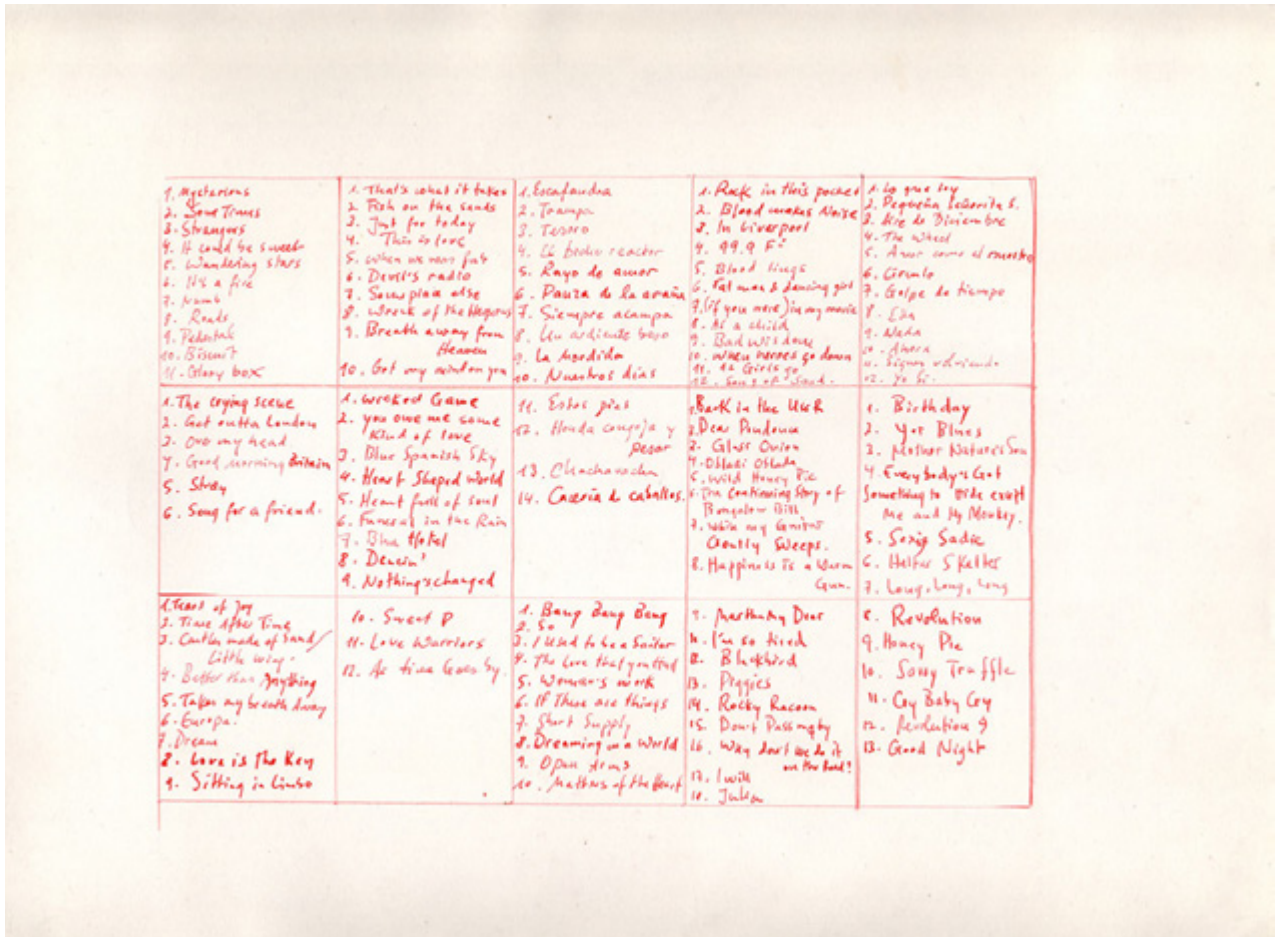 1. Mysterious
2. Sour Times
3. Strangers
4. It could be sweet
5. Wandering stars
6. It's a fire
7. Numb
8. Roads
9. Pedestal
10. Biscuit
11. Glory box
1. That's what it takes
2. Fish on the sands
3. Just for today
4. This is love
5. When we was fab
6. Devil's radio
7. Someplace else
8. Wreck of the Hesperus
9. Breath away from
Heaven
10. Got my mind on you
1. Escafandra
2. Trampa
3. Tesoro
4. El bello reactor
5. Rayo de amor
6. Danza de la araña
7. Siempre acampa
8. Un ardiente beso
9. La Mordida
10. Nuestros días
1. Rock in this pocket
2. Blood makes Noise
3. In Liverpool
4. 99.9 F°
5. Blood sings
6. Fat man & dancing girl
7. (if you were) in my movie
8. As a child
9. Bad Wisdom
10. When heroes go down
11. 12 Girls go
12. Song of Sand.
1. Lo que soy
2. Pequeña Señorita S.
3. de Diciembre
4. The Wheel
5. Amor como el nuestro
6. Círculo
7. Golpe de tiempo
8. Ella
9. Nada
10. Ahora
11. Sigues volviendo
12. Yo Si.
1. The crying scene
2. Get outta London
3. Over my head
4. Good morning Britain
5. Stray
6. Song for a friend.
1. Wicked Game
2. you owe me some
Kind of love
3. Blue Spanish Sky
4. Heart Shaped world
5. Heart full of soul
6. Funeral in the Rain
7. Blue Hotel
8. Dencin'
9. Nothing's changed
11. Estos pies
12. Honda congoja y
pesar
13. Chachavacha
14. Cacería de caballos.
1. Back in the USSR
2. Dear Prudence
3. Glass Onion
4. Obladi Oblada
5. Wild Honey Pie
6. The Continuing Story of
Bungalow Bill
7. While my Guitar
Gently Sweeps.
8. Happiness is a Warm
Gun.
1. Birthday
2. Yer Blues
3. Mother Nature's Son
4. Everybody's Got
Something to Hide exept
Me and My Monkey.
5. Sexie Sadie
6. Helter Skelter
7. Long, Long, Long
1. Tears of Joy
2. Time After Time
3. Castles made of Sand/
Little wing.
4. Better than Anything
5. Takes my breath Away
6. Europa.
7. Dream
8. Love is The Key
9. Sitting in Limbo
10. Sweet P
11. Love Warriors
12. As time Goes by.
1. Bang Bang Bang
2. So
3. I Used to be a Sailor
4. The love that you had
5. Woman's work
6. If These are things
7. Short Supply
8. Dreaming on a World
9. Open Arms
10. Matters of the Heart
9. Martha my Dear
10. I'm so tired
12. Blackbird
13. Piggies
14. Rocky Racoon
15. Don't Pass me by
16. Why don't we do it
on the Road?
17. I will
18. Julia
8. Revolution
9. Honey Pie
10. Savoy Truffle
11. Cry Baby Cry
12. Revolution 9
13. Good Night